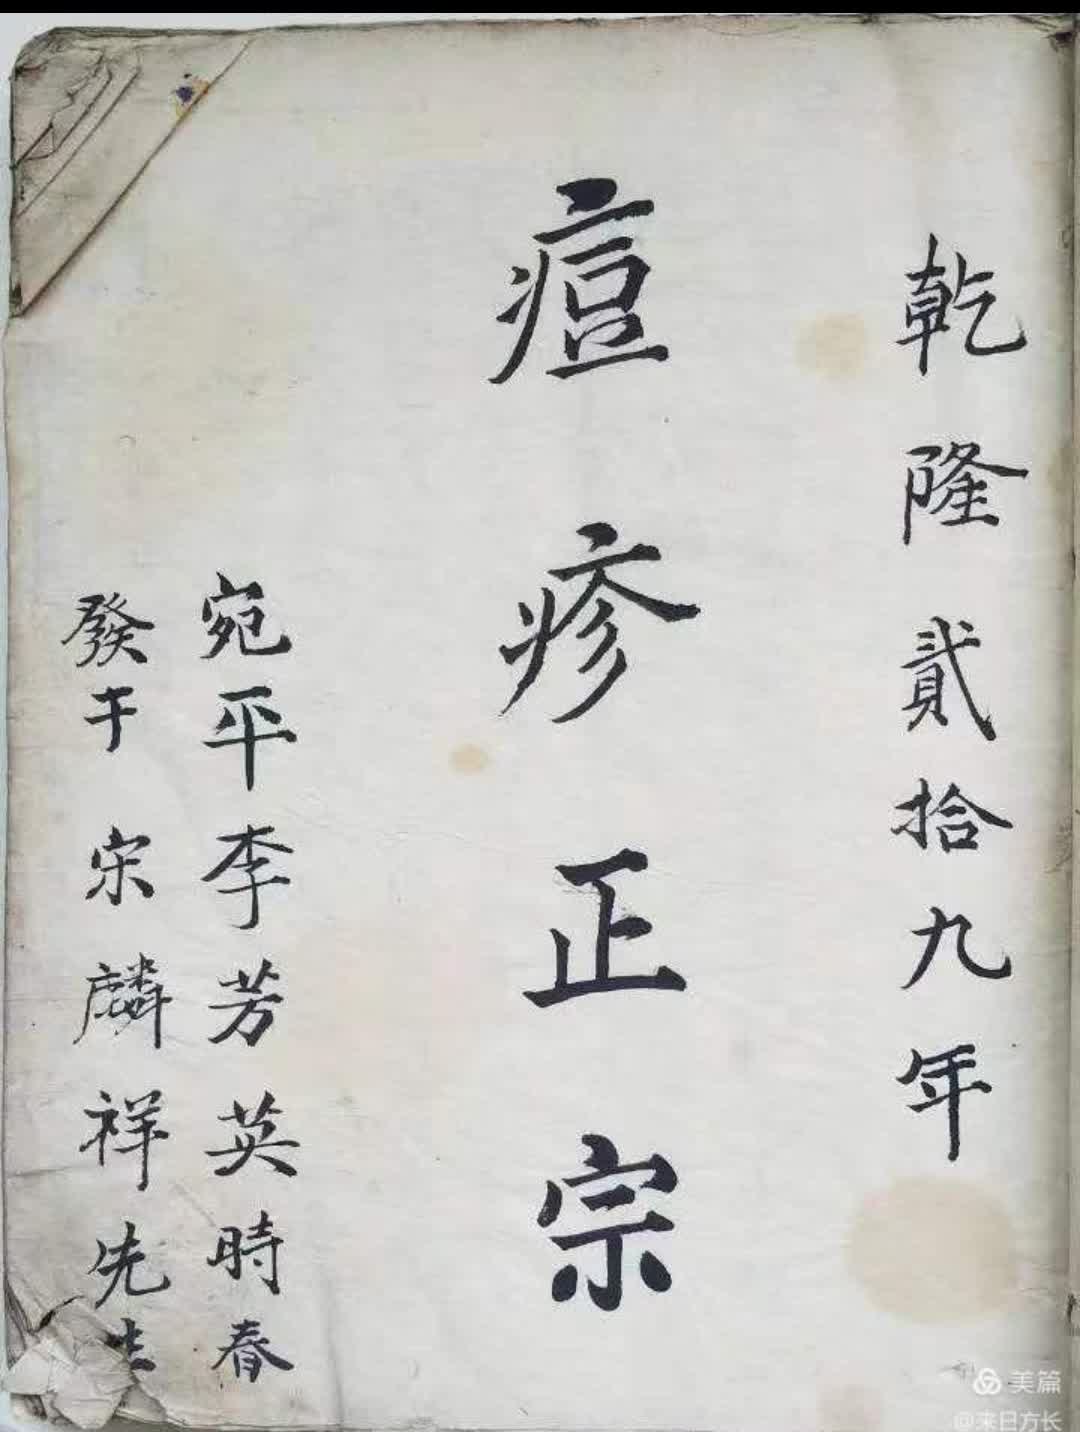 乾隆貳拾九年
痘疹正宗
宛平李芳英時春
發于宋麟祥先生
美篇
@来日方长